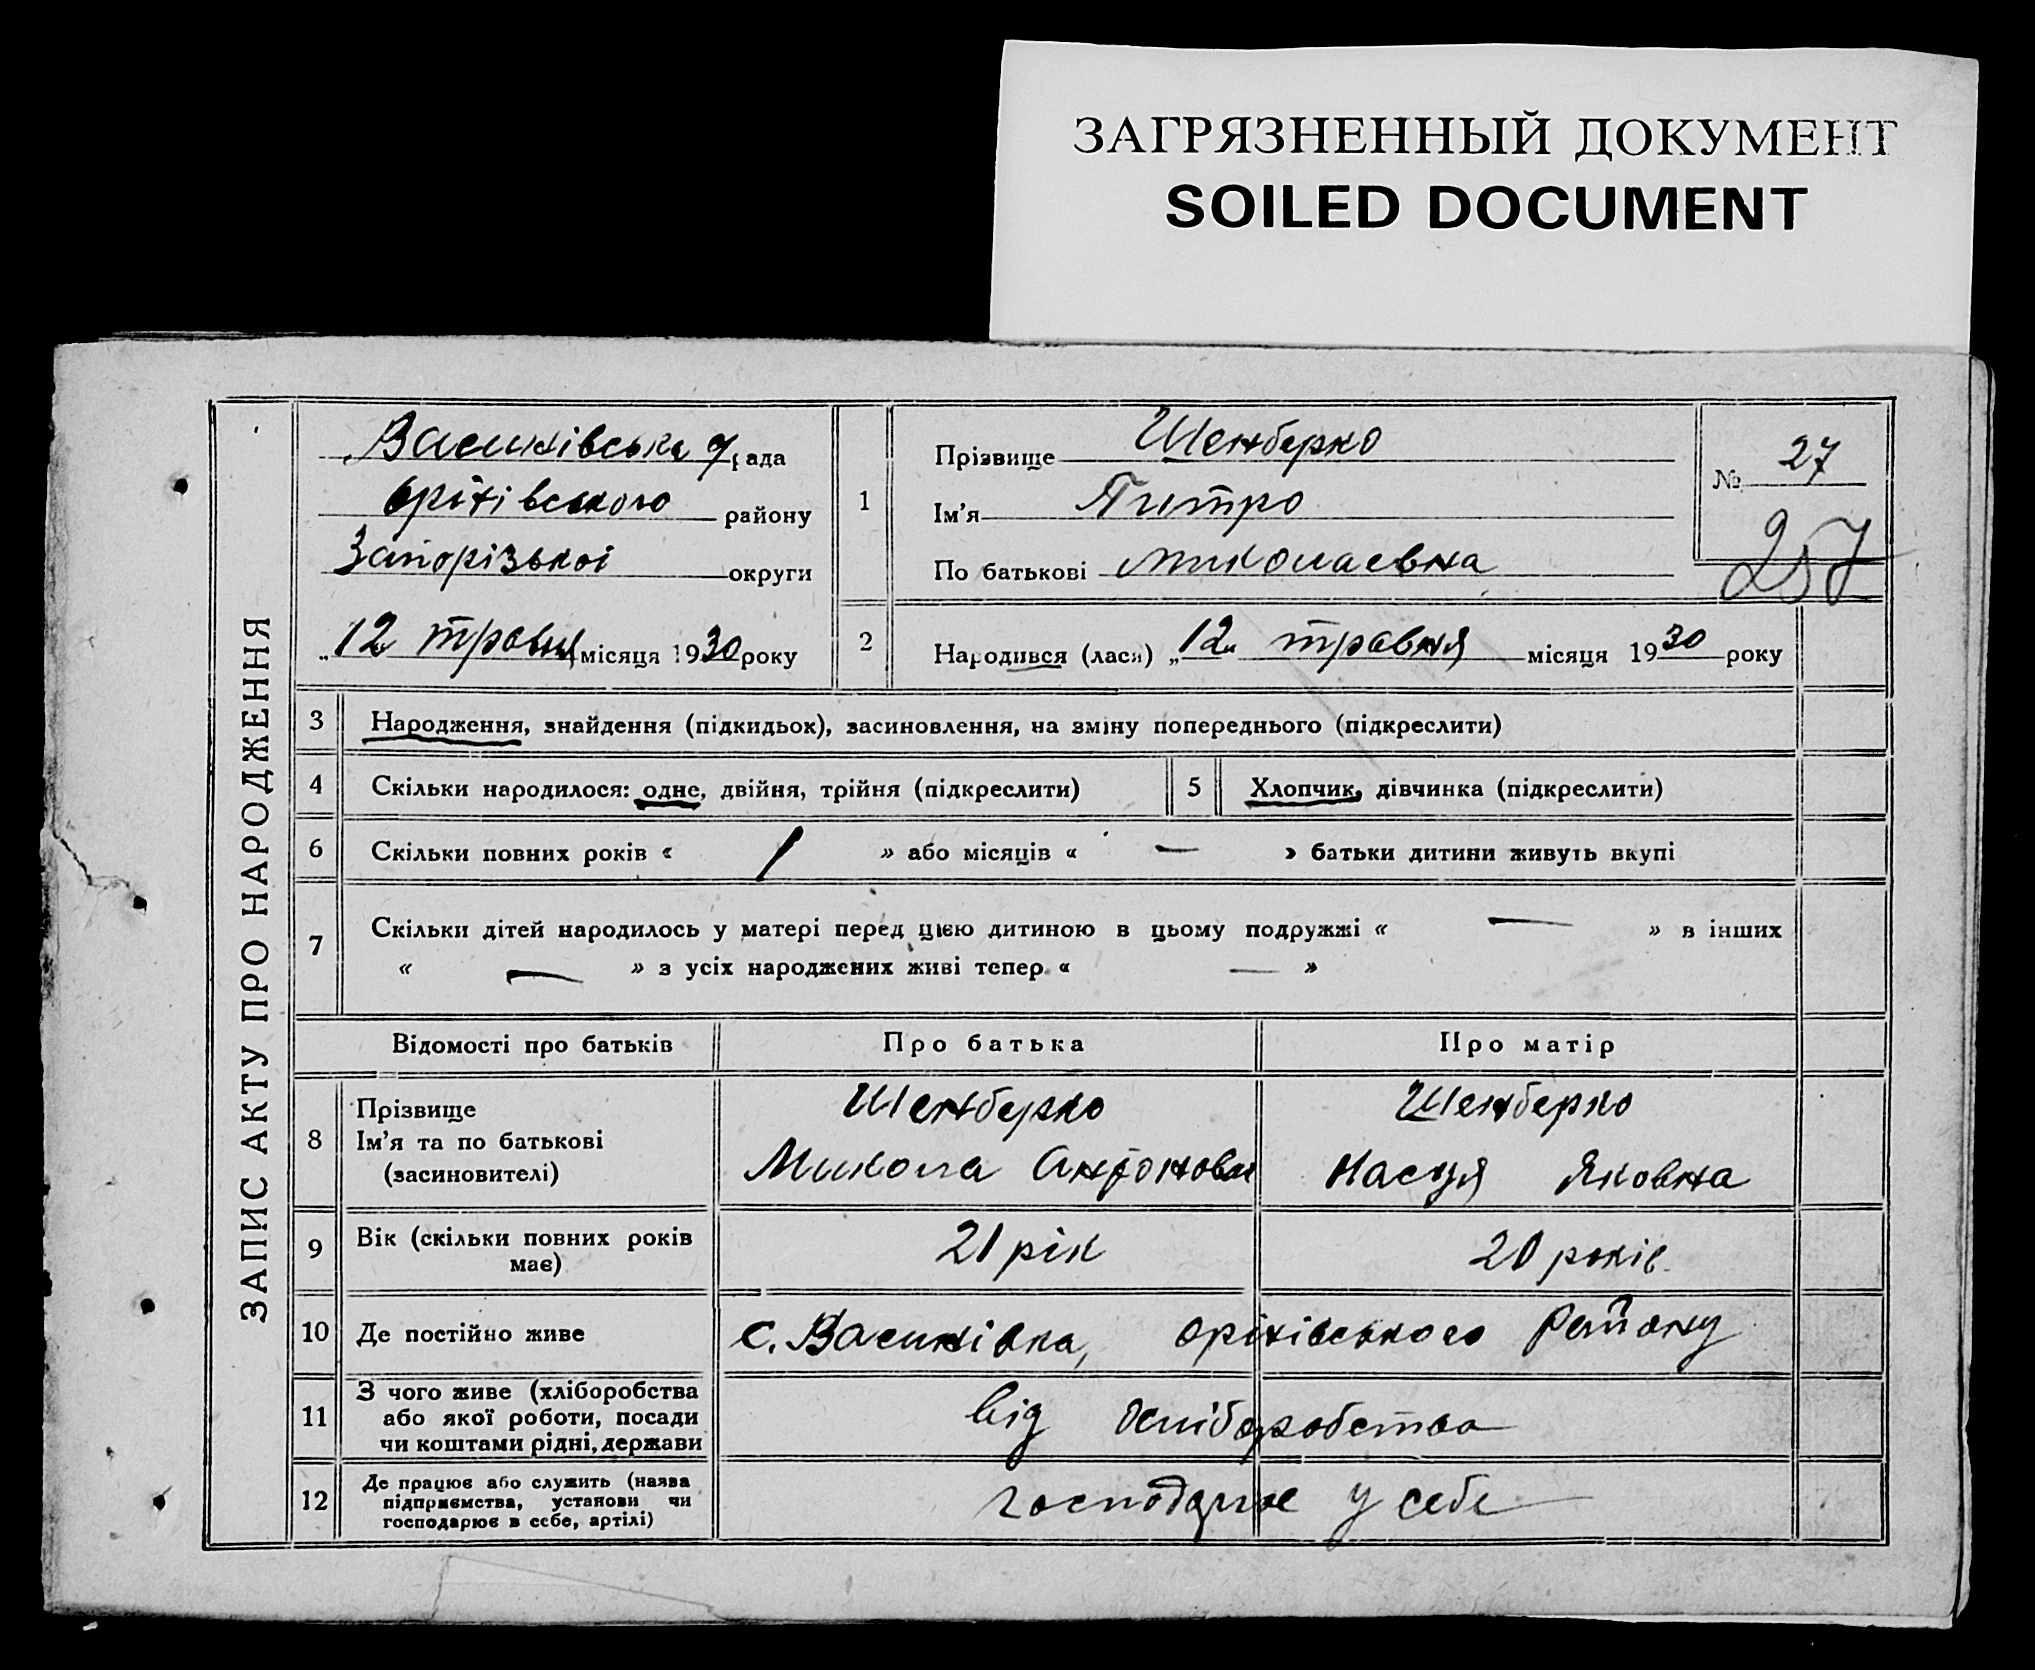 ЗАГРЯЗНЕННЫЙ ДОКУМЕНТ
SOILED DOCUMENT
ЗАПИС АКТУ ПРО НАРОДЖЕННЯ
рада
Оріхівського району
Запорізької округи
„12“ травня місяця 1930 року
1
Прізвище Шенберко
Ім'я Питро
По батькові Миколаевна
№ 27
257
2 Народився (лася) „12“ травня місяця 1930 року
3 Народження, знайдення (підкидьох), засиновлення, на зміну попереднього (підкреслити)
4 Скільки народилося: одне, двійня, трійня (підкреслити)
5 Хлопчик, дівчинка (підкреслити)
6 Скільки повних років « 1 » або місяців « — » батьки дитини живуть вкупі
7 Скільки дітей народилось у матері перед цією дитиною в цьому подружжі « — » в інших
« — » з усіх народжених живі тепер « — »
Відомості про батьків Про батька Про матір
8 Прізвище
Ім'я та по батькові
(засиновителі)
Шенберко
Микола Антонови
Шенберко
Настя Яковна
9 Вік (скільки повних років
має)
21 рік
20 років
10 Де постійно живе
с. Василівка, Оріхівського Району
11 З чого живе (хліборобства
або якої роботи, посади
чи коштами рідні, держави
від хліборобства
12 Де працює або служить (назва
підприємства, установи чи
господарює в себе, артілі)
господарює у себе